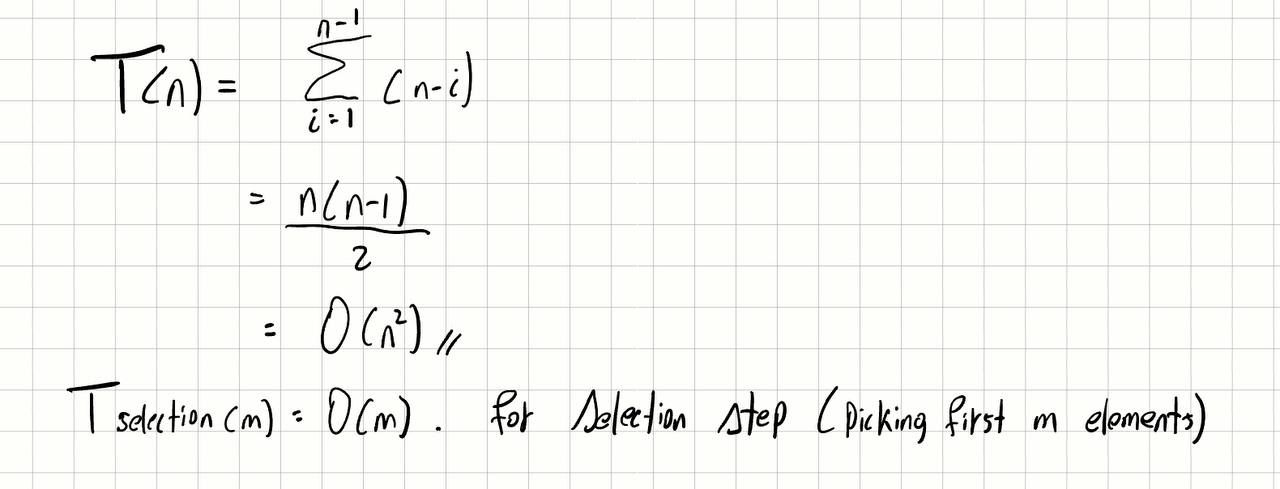 T(n) = \sum_{i=1}^{n-1} (n-i)
= \frac{n(n-1)}{2}
= O(n²) //
T selection(m) = O(m). for selection step (picking first m elements)